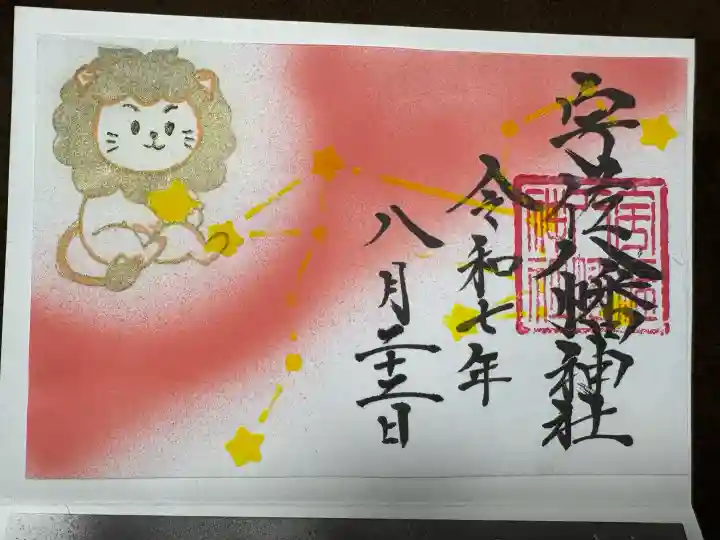 宇佐八幡神社
令和七年
八月二十二日